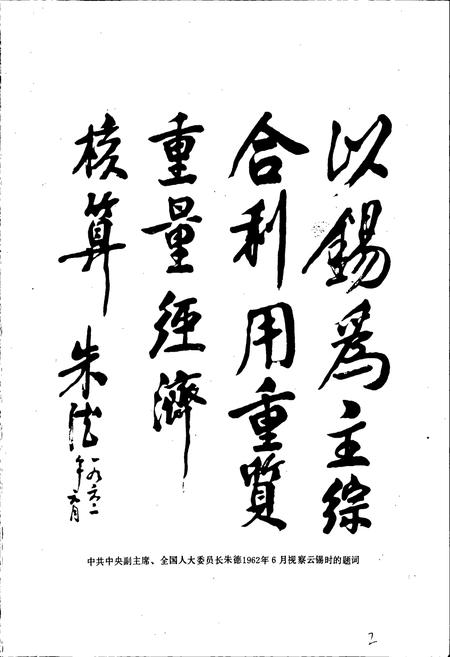 以錫爲主綜
合利用重質
重量經濟
核算 朱德
一九六二
年 月
中共中央副主席、全国人大委员长朱德1962年6月视察云锡时的题词
2